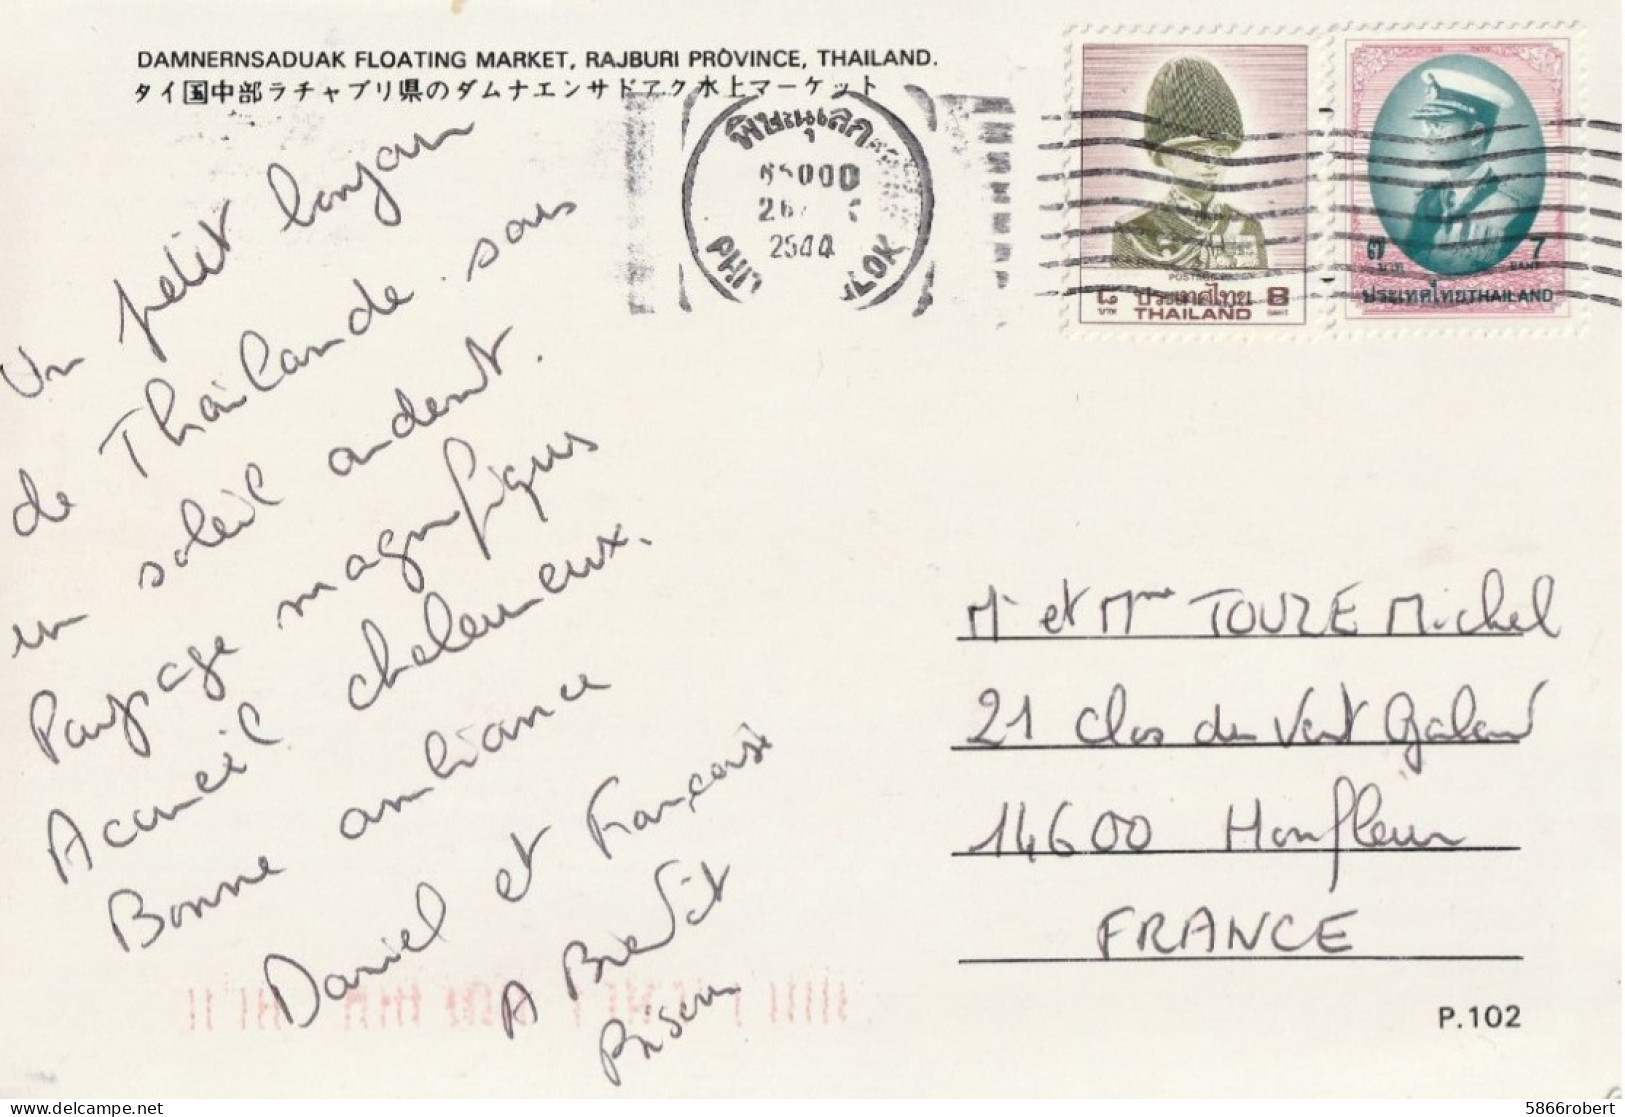 DAMNERNSADUAK FLOATING MARKET, RAJBURI PROVINCE, THAILAND.
タイ国中部ラチャブリ県のダムナエンサドアク水上マーケット
พิษณุโลก
65000
26
2544
PHIT LOK
POSTAGE
๘ ประเทศไทย 8
บาท THAILAND BAHT
๗ 7
บาท BAHT
ประเทศไทย THAILAND
Un petit bonjour
de Thaïlande sous
un soleil ardent.
Paysage magnifiques
Accueil chaleureux.
Bonne ambiance
Daniel et Françoise
A Bientôt
Mr et Mme TOUZE Michel
21 Clos du Vert Galant
14600 Honfleur
FRANCE
P.102
5866robert